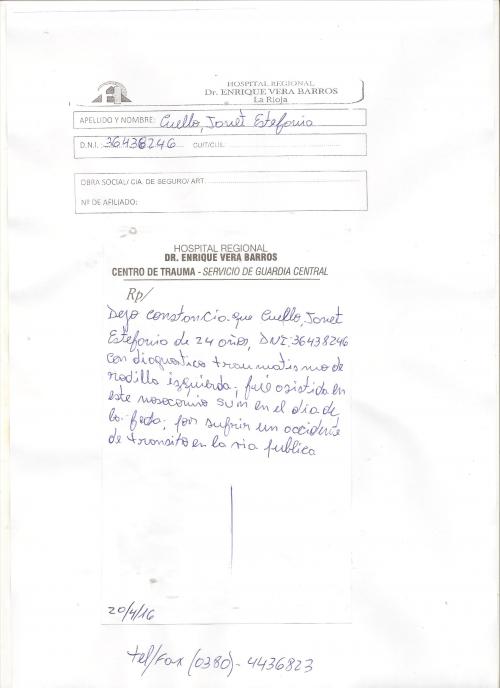 HOSPITAL REGIONAL
Dr. ENRIQUE VERA BARROS
La Rioja
APELLIDO Y NOMBRE: Cuello, Janet Estefania
D.N.I.: 36438246 CUIT/CUIL:
OBRA SOCIAL/ CIA. DE SEGURO/ ART.
Nº DE AFILIADO:
HOSPITAL REGIONAL
DR. ENRIQUE VERA BARROS
CENTRO DE TRAUMA - SERVICIO DE GUARDIA CENTRAL
Rp/
Dejo constancia que Cuello, Janet
Estefania de 24 años, DNI: 36438246
con diagnostico traumatismo de
rodilla izquierda; fué asistida en
este nosocomio en el dia de
la fecha; por sufrir un accidente
de transito en la via publica
20/4/16
tel/Fax (0380)- 4436823